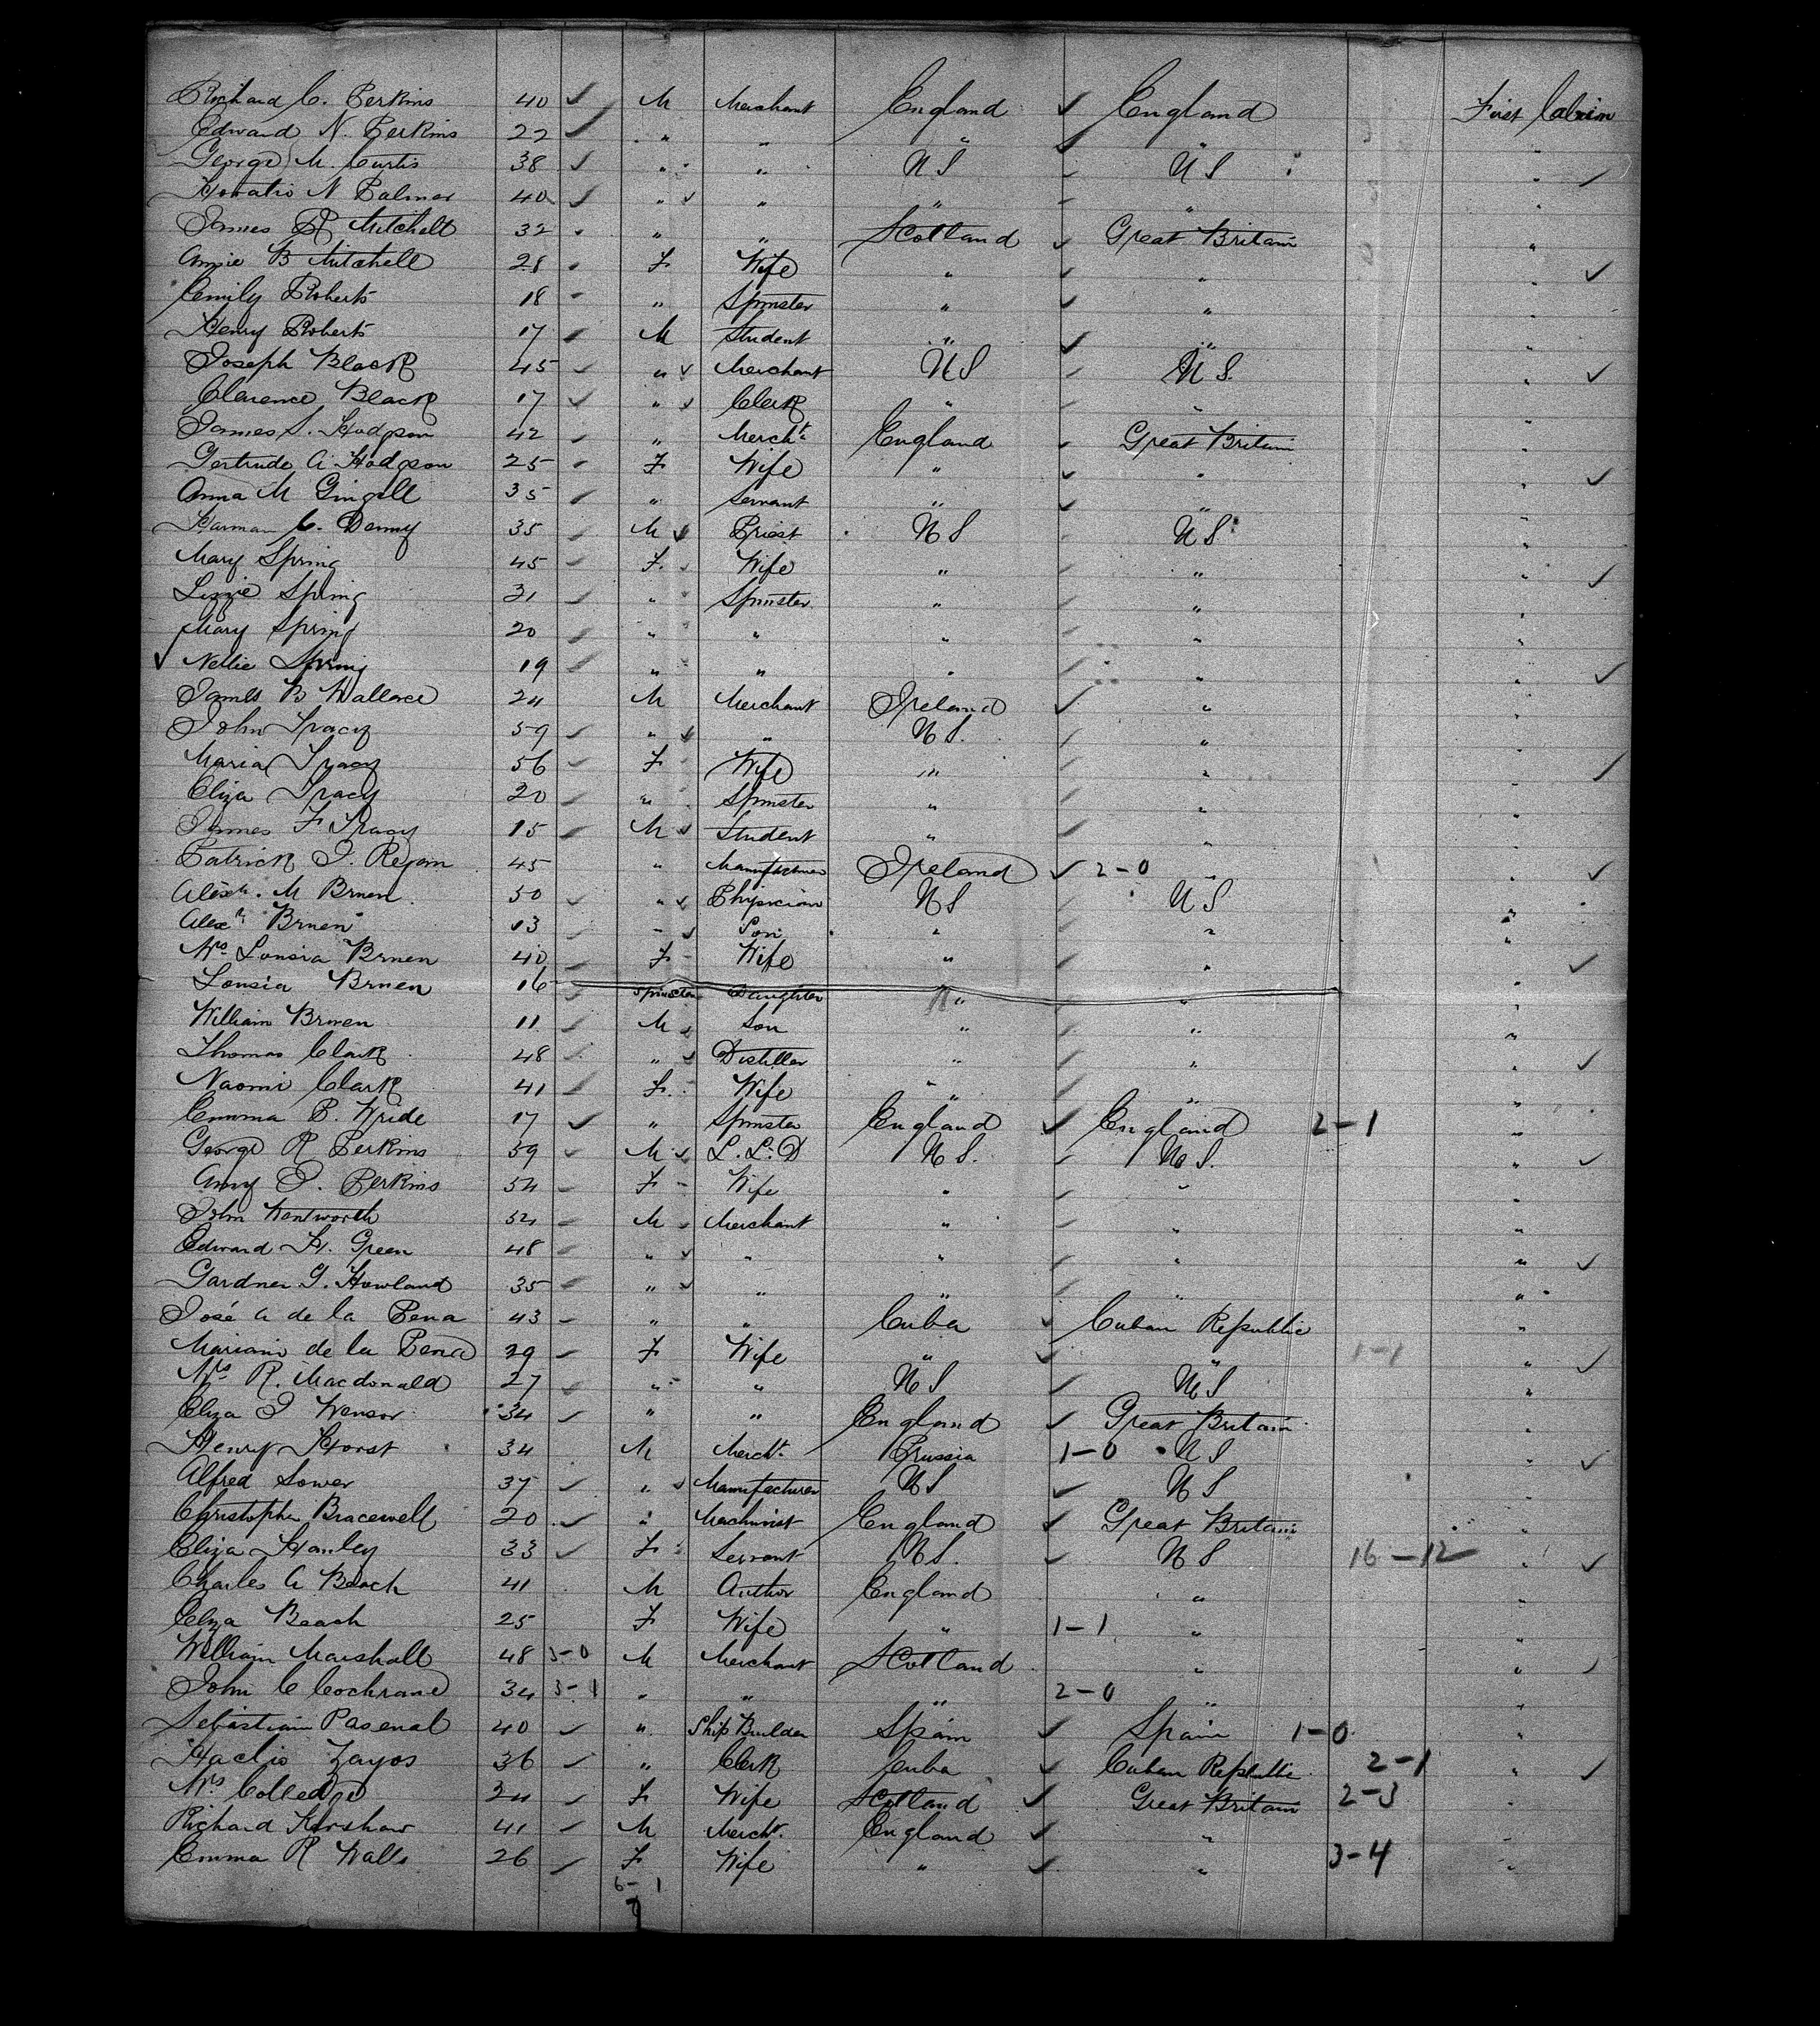 Richard C. Perkins 40 ✓ M Merchant England ✓ England First Cabin
Edward N. Perkins 22 ✓ " " " ✓ "
George M. Curtis 38 ✓ " " U S U S " ✓
Horatio N Palmer 40 ✓ " " " " "
James R Mitchell 32 " " Scotland ✓ Great Britain "
Annie B Mitchell 28 F Wife " ✓ " " ✓
Emily Roberts 18 " Spinster " ✓ " "
Henry Roberts 17 M Student " ✓ " "
Joseph Black 45 " Merchant U S U S. " ✓
Clarence Black 17 ✓ " Clerk " " "
James S. Hodgson 42 " Mercht. England Great Britain "
Gertrude A Hodgson 25 F Wife " ✓ " " ✓
Anna M Gingell 35 " Servant " ✓ " "
Harman C. Denny 35 M Priest U S U S "
Mary Spring 45 F. Wife " " " ✓
Lizzie Spring 21 " Spinster " " "
Mary Spring 20 " " " " "
✓ Nellie Spring 19 " " " " " ✓
James B Wallace 24 M Merchant Ireland ✓ " "
John Tracy 59 " " U S. " "
Maria Tracy 56 F Wife " " " ✓
Eliza Tracy 20 " Spinster " " "
James F Tracy 15 M Student " " "
Patrick J. Regan 45 " Manufacturer Ireland ✓ 2-0 " " ✓
Alexr. M Bruen 50 " Physician U S U S "
Alexr Bruen 13 " Son " " "
Mrs Lousia Bruen 40 F Wife " " ✓
Lousia Bruen 16 Spinster Daughter " " "
William Bruen 11 M Son " " "
Thomas Clark 48 " Distiller " " " ✓
Naomi Clark 41 F. Wife " " "
Emma P. Wride 17 ✓ " Spinster England ✓ England 2-1 "
George R Perkins 59 M L.L.D U S. U S. " ✓
Amy J. Perkins 54 F Wife " " "
John Wentworth 54 M Merchant " " "
Edward H. Green 48 " " " " " ✓
Gardner G. Howland 35 " " " " "
José A de la Pena 43 " " Cuba ✓ Cuban Republic "
Mariano de la Pena 29 F Wife " ✓ " 1-1 " ✓
Mrs R. Macdonald 27 " " U S U S "
Eliza J Wensor 34 " " England ✓ Great Britain "
Henry Horst 34 M Mercht. Prussia 1-0 U S " ✓
Alfred Lower 37 " Manufacturer U S U S "
Christopher Bracewell 20 ✓ " Machinist England ✓ Great Britain "
Eliza Hanley 33 F Servant U S. U S 16-12 " ✓
Charles A Beach 41 M Author England " "
Eliza Beach 25 F Wife " 1-1 " "
William Marshall 48 3-0 M Merchant Scotland " "
John C Cochrane 34 3-1 " " " 2-0 " "
Sebastian Pasenal 40 ✓ " Ship Builder Spain ✓ Spain 1-0 "
Zayos 36 ✓ " Clerk Cuba ✓ Cuban Republic 2-1 " ✓
Mrs Colledge 24 F Wife Scotland ✓ Great Britain 2-3 "
Richard Kershaw 41 M Mercht. England ✓ " "
Emma R Walls 26 F Wife " ✓ " 3-4 "
6-1
7